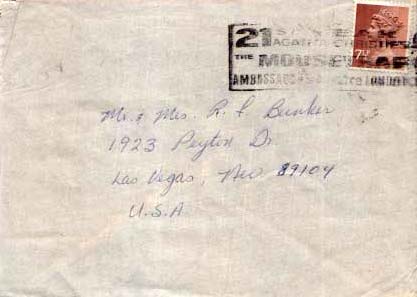 21
AGATHA CHRISTIE'S
THE MOUSETRAP
AMBASSADORS THEATRE LONDON
Mr. & Mrs. R. L. Bunker
1923 Peyton Dr.
Las Vegas, Nev 89104
U.S.A.